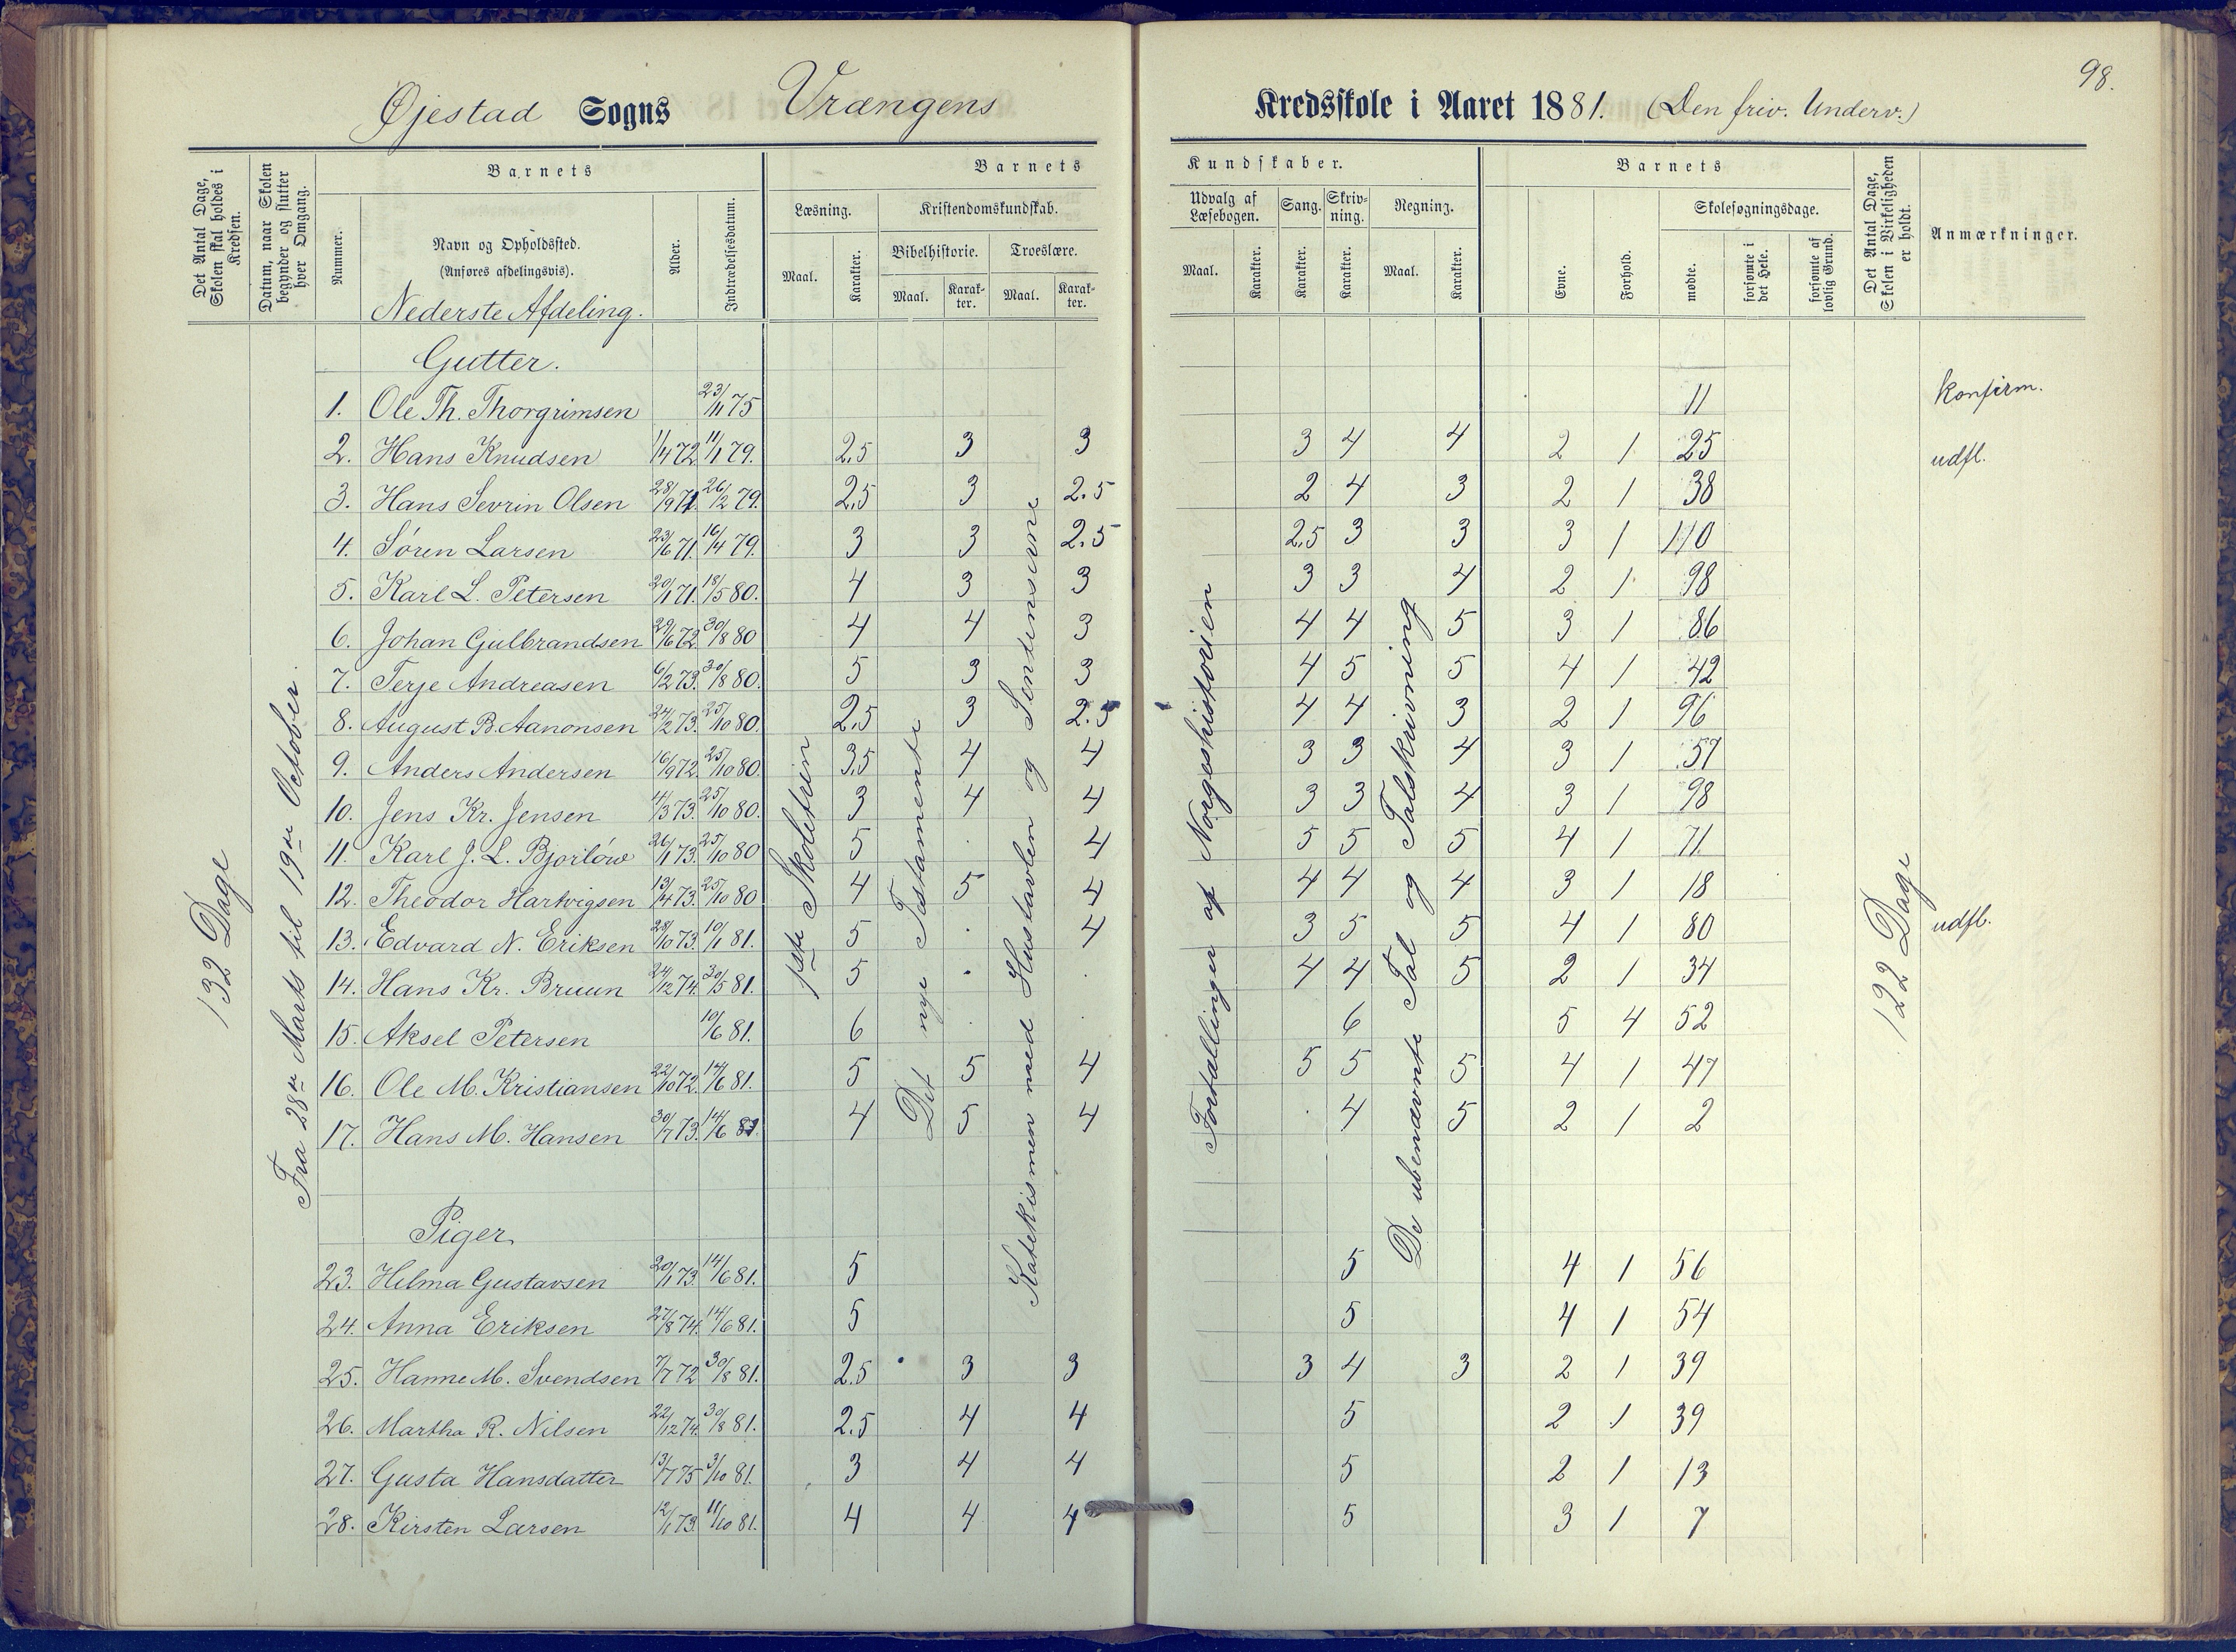 98.
Øjestad Sogns Vrængens Kredsskole i Aaret 1881. (Den friv. Underv.)
Det Antal Dage, Skolen skal holdes i Kredsen.
Datum, naar Skolen begynder og slutter hver Omgang.
Barnets
Nummer.
Navn og Opholdssted.
(Anføres afdelingsvis).
Nederste Afdeling.
Alder.
Indtrædelsesdatum.
Barnets Kundskaber.
Læsning.
Maal.
Karakter.
Kristendomskundskab.
Bibelhistorie.
Maal.
Karakter.
Troeslære.
Maal.
Karakter.
Udvalg af Læsebogen.
Maal.
Karakter.
Sang.
Karakter.
Skrivning.
Karakter.
Regning.
Maal.
Karakter.
Barnets
Evne.
Forhold.
Skolesøgningsdage.
mødte.
forsømte i det Hele.
forsømte af lovlig Grund.
Det Antal Dage, Skolen i Virkeligheden er holdt.
Anmærkninger.
132 Dage
Fra 28de Marts til 19de October
1ste Skoletrin
Det nye Testamente
Katekismen med Hustavlen og Sentenserne
Fortællinger af Norgeshistorien
De ubenævnte Tal og Talskrivning
122 Dage
Gutter.
1. Ole Th. Thorgrimsen 23/11 75 11 konfirm.
2. Hans Knudsen 1/4 72 11/1 79. 2,5 3 3 3 4 4 2 1 25 udfl.
3. Hans Sevrin Olsen 28/9 71. 26/2 79. 2,5 3 2.5 2 4 3 2 1 38
4. Søren Larsen 23/6 71. 16/4 79. 3 3 2.5 2,5 3 3 3 1 110
5. Karl L. Petersen 20/1 71. 18/5 80. 4 3 3 3 3 4 2 1 98
6. Johan Gulbrandsen 29/6 72. 30/8 80 4 4 3 4 4 5 3 1 86
7. Terje Andreasen 6/2 73. 30/8 80. 5 3 3 4 5 5 4 1 42
8. August B. Aanonsen 24/2 73. 25/10 80. 2,5 3 2.5 4 4 3 2 1 96
9. Anders Andersen 16/9 72. 25/10 80. 3,5 4 4 3 3 4 3 1 57
10. Jens Kr. Jensen 14/3 73. 25/10 80. 3 4 4 3 3 4 3 1 98
11. Karl J. L. Bjorløw 26/1 73. 25/10 80 5 . 4 5 5 5 4 1 71
12. Theodor Hartvigsen 13/4 73. 25/10 80 4 5 4 4 4 4 3 1 18
13. Edvard N. Eriksen 28/10 73. 10/1 81. 5 . 4 3 5 5 4 1 80 udfl.
14. Hans Kr. Bruun 24/12 74. 30/5 81. 5 . . 4 4 5 2 1 34
15. Aksel Petersen 10/6 81. 6 . . 6 5 4 52
16. Ole M. Kristiansen 22/10 72. 14/6 81. 5 5 4 5 5 5 4 1 47
17. Hans M. Hansen 30/7 73. 14/6 81. 4 5 4 . 4 5 2 1 2
Piger.
23. Hilma Gustavsen 20/1 73. 14/6 81. 5 5 4 1 56
24. Anna Eriksen 27/8 74. 14/6 81. 5 5 4 1 54
25. Hanne M. Svendsen 7/7 72 30/8 81. 2.5 3 3 3 4 3 2 1 39
26. Martha R. Nilsen 22/12 74. 30/8 81. 2.5 4 4 5 2 1 39
27. Gusta Hansdatter 13/7 75 3/10 81. 3 4 4 5 2 1 13
28. Kirsten Larsen 12/1 73. 11/10 81. 4 4 4 5 3 1 7